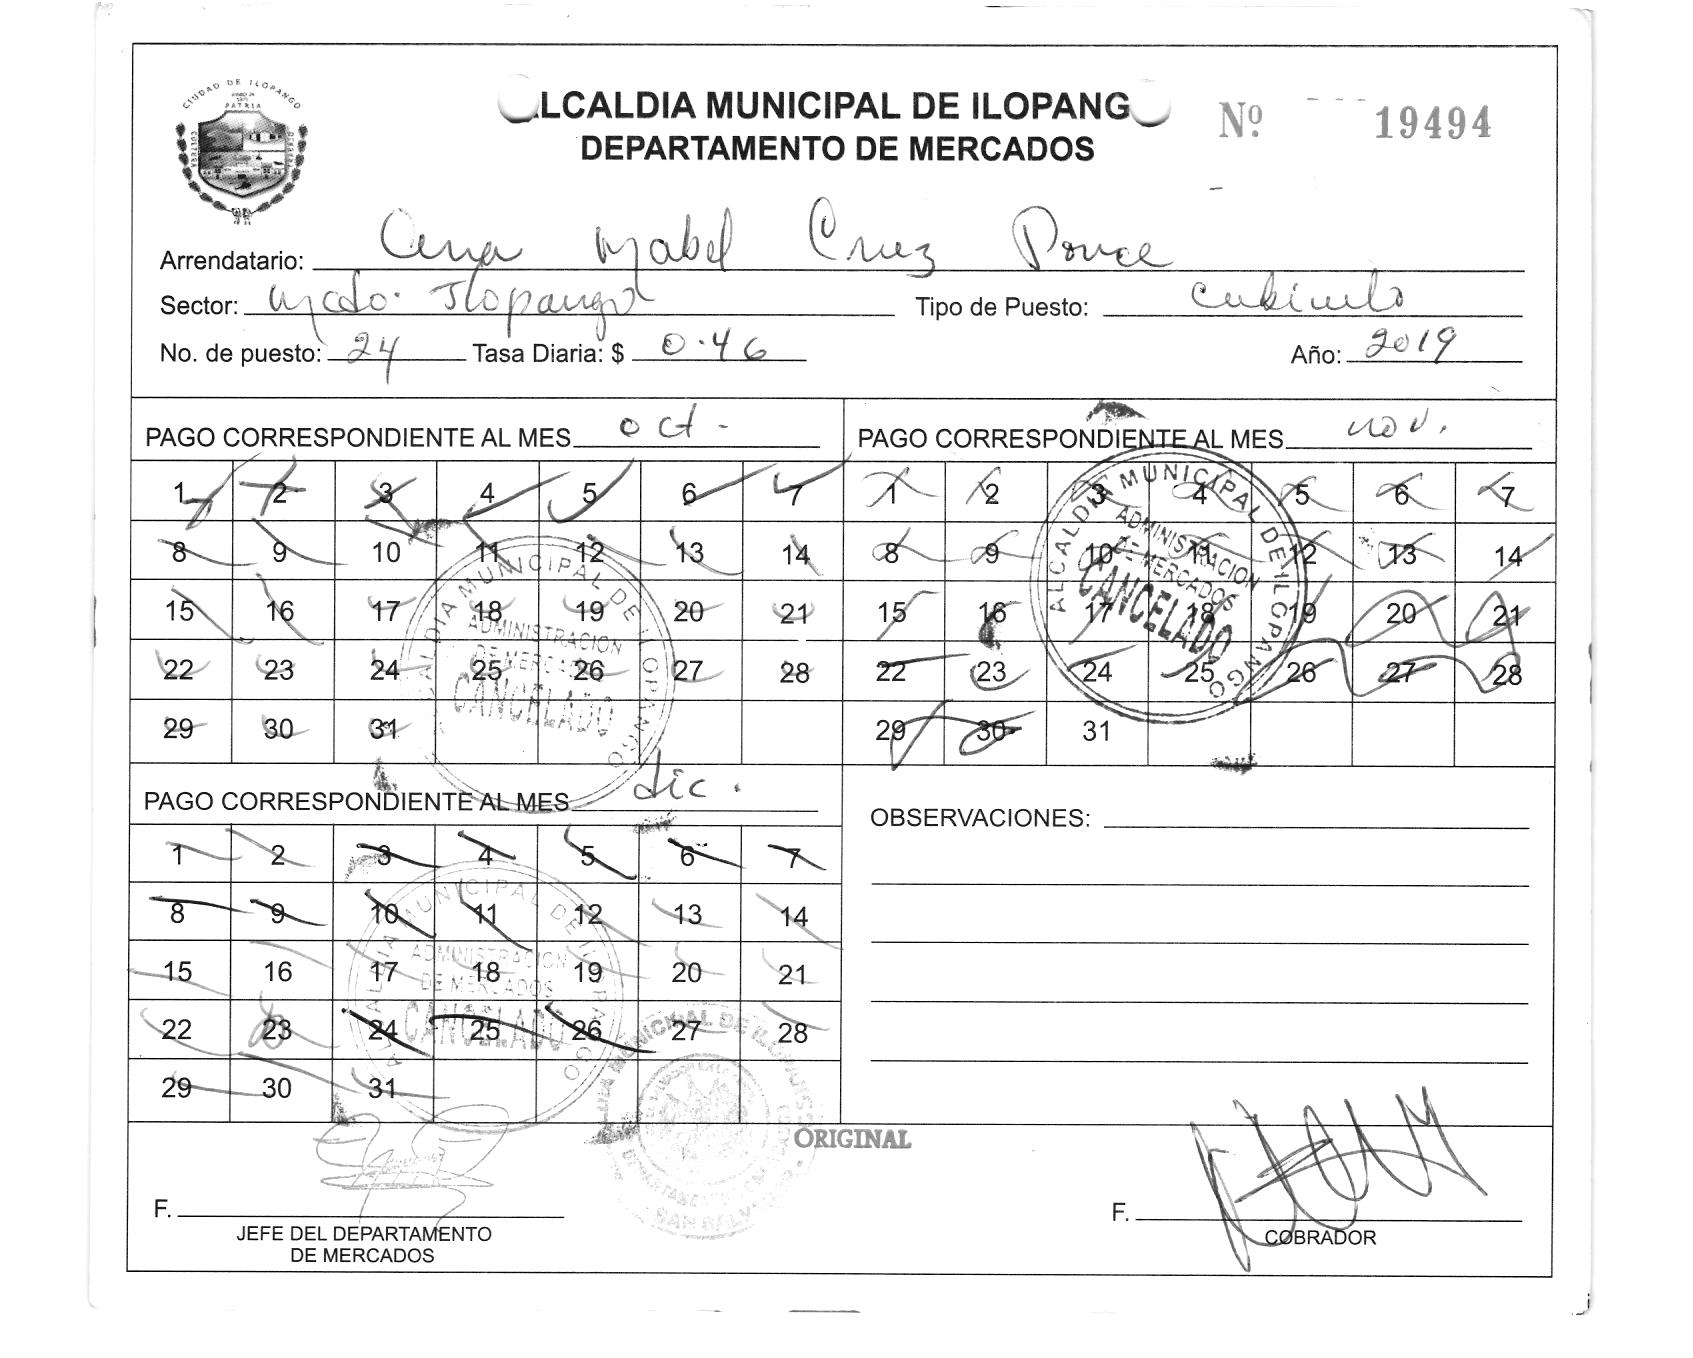 CIUDAD DE ILOPANGO
PATRIA
CULTURA
ALCALDIA MUNICIPAL DE ILOPANGO
DEPARTAMENTO DE MERCADOS
Nº 19494
Arrendatario: Ana Mabel Cruz Ponce
Sector: Mcdo. Ilopango Tipo de Puesto: Cubiculo
No. de puesto: 24 Tasa Diaria: $ 0.46 Año: 2019
PAGO CORRESPONDIENTE AL MES oct.
1 2 3 4 5 6 7
8 9 10 11 12 13 14
15 16 17 18 19 20 21
22 23 24 25 26 27 28
29 30 31
ALCALDIA MUNICIPAL DE ILOPANGO
ADMINISTRACION
DE MERCADOS
CANCELADO
PAGO CORRESPONDIENTE AL MES nov.
1 2 3 4 5 6 7
8 9 10 11 12 13 14
15 16 17 18 19 20 21
22 23 24 25 26 27 28
29 30 31
ALCALDIA MUNICIPAL DE ILOPANGO
ADMINISTRACION
DE MERCADOS
CANCELADO
PAGO CORRESPONDIENTE AL MES dic.
1 2 3 4 5 6 7
8 9 10 11 12 13 14
15 16 17 18 19 20 21
22 23 24 25 26 27 28
29 30 31
ALCALDIA MUNICIPAL DE ILOPANGO
ADMINISTRACION
DE MERCADOS
CANCELADO
OBSERVACIONES:
MUNICIPAL DE ILOPANGO
DEPARTAMENTO
SAN SALV
ORIGINAL
F.
JEFE DEL DEPARTAMENTO
DE MERCADOS
F.
COBRADOR